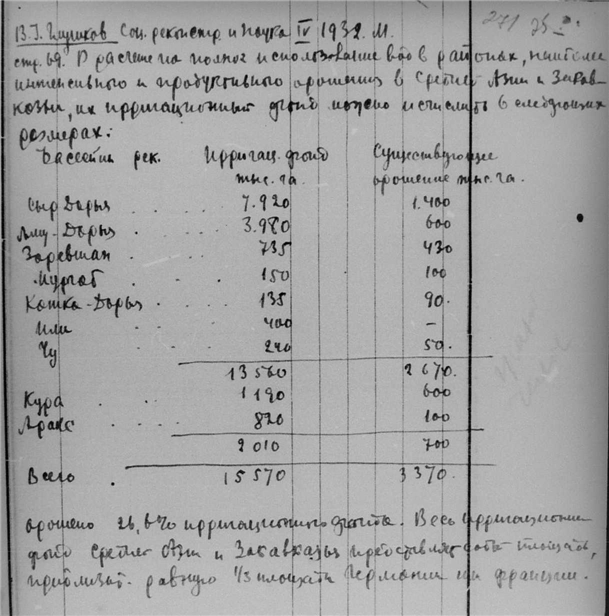 271
В.Г. Глушков Соц. реконстр и наука IV 1932. М.
стр. 69. В расчете на полное использование вод в районах, наиболее
интенсивного и продуктивного орошения в Средней Азии и Закав-
казьи, их ирригационный фонд можно исчислить в следующих
размерах:
Бассейны рек. Ирригац. фонд Существующее
тыс. га. орошение тыс. га.
Сыр Дарья 7.920 1.400
Аму-Дарья 3.980 600
Заревшан 735 430
Мургаб 150 100
Кашка-Дарья 135 90.
Или 400 –
Чу 240 50.
13 560 2 670.
Кура 1 190 600
Аракс 820 100
2 010 700
Всего 15 570 3 370.
орошено 26,6% ирригационного фонда. Весь ирригацион
фонд Средней Азии и Закавказья представляет собой площадь,
приблизит. равную 1/3 площади Германии или Франции.